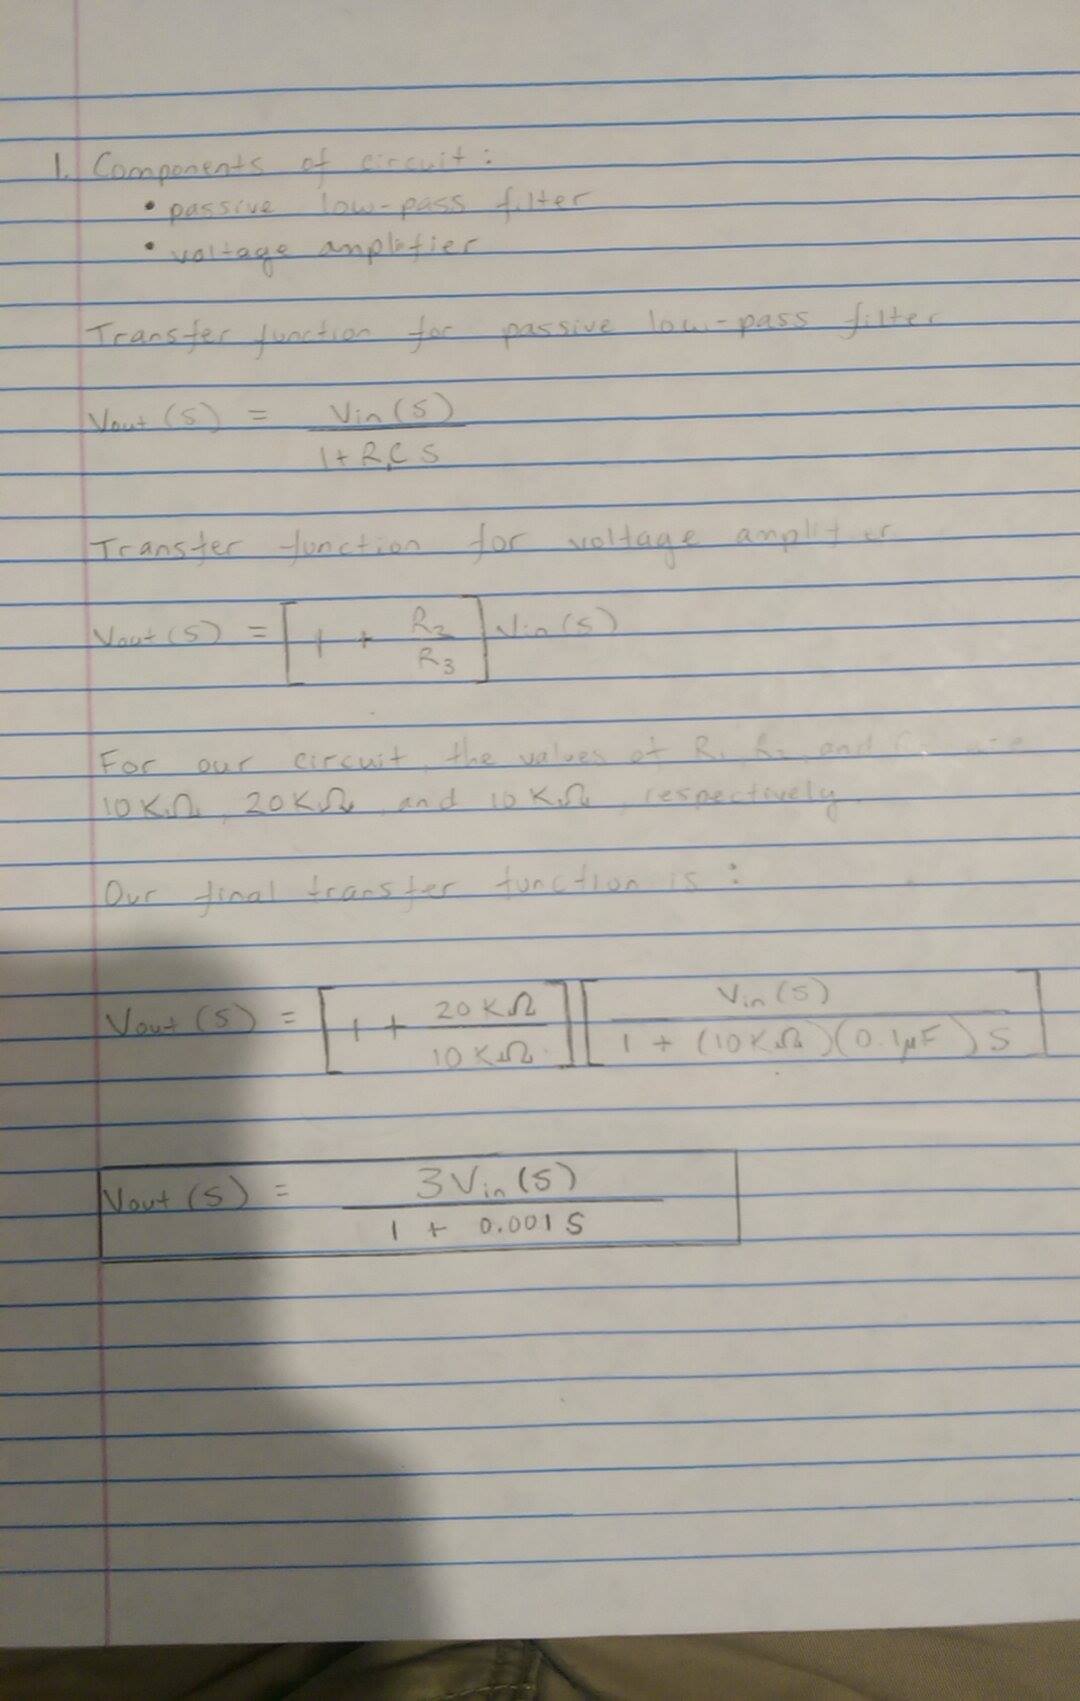 1. Components of circuit:
• passive low-pass filter
• voltage amplifier
Transfer function for passive low-pass filter
Vout (S) = Vin (S) / 1 + R₁C S
Transfer function for voltage amplifier
Vout (S) = [1 + R₂ / R₃] Vin (S)
For our circuit, the values of R₁, R₂, and
10 KΩ, 20 KΩ, and 10 KΩ, respectively.
Our final transfer function is:
Vout (S) = [1 + 20 KΩ / 10 KΩ] [Vin (S) / 1 + (10 KΩ)(0.1μF) S]
Vout (S) = 3 Vin (S) / 1 + 0.001 S